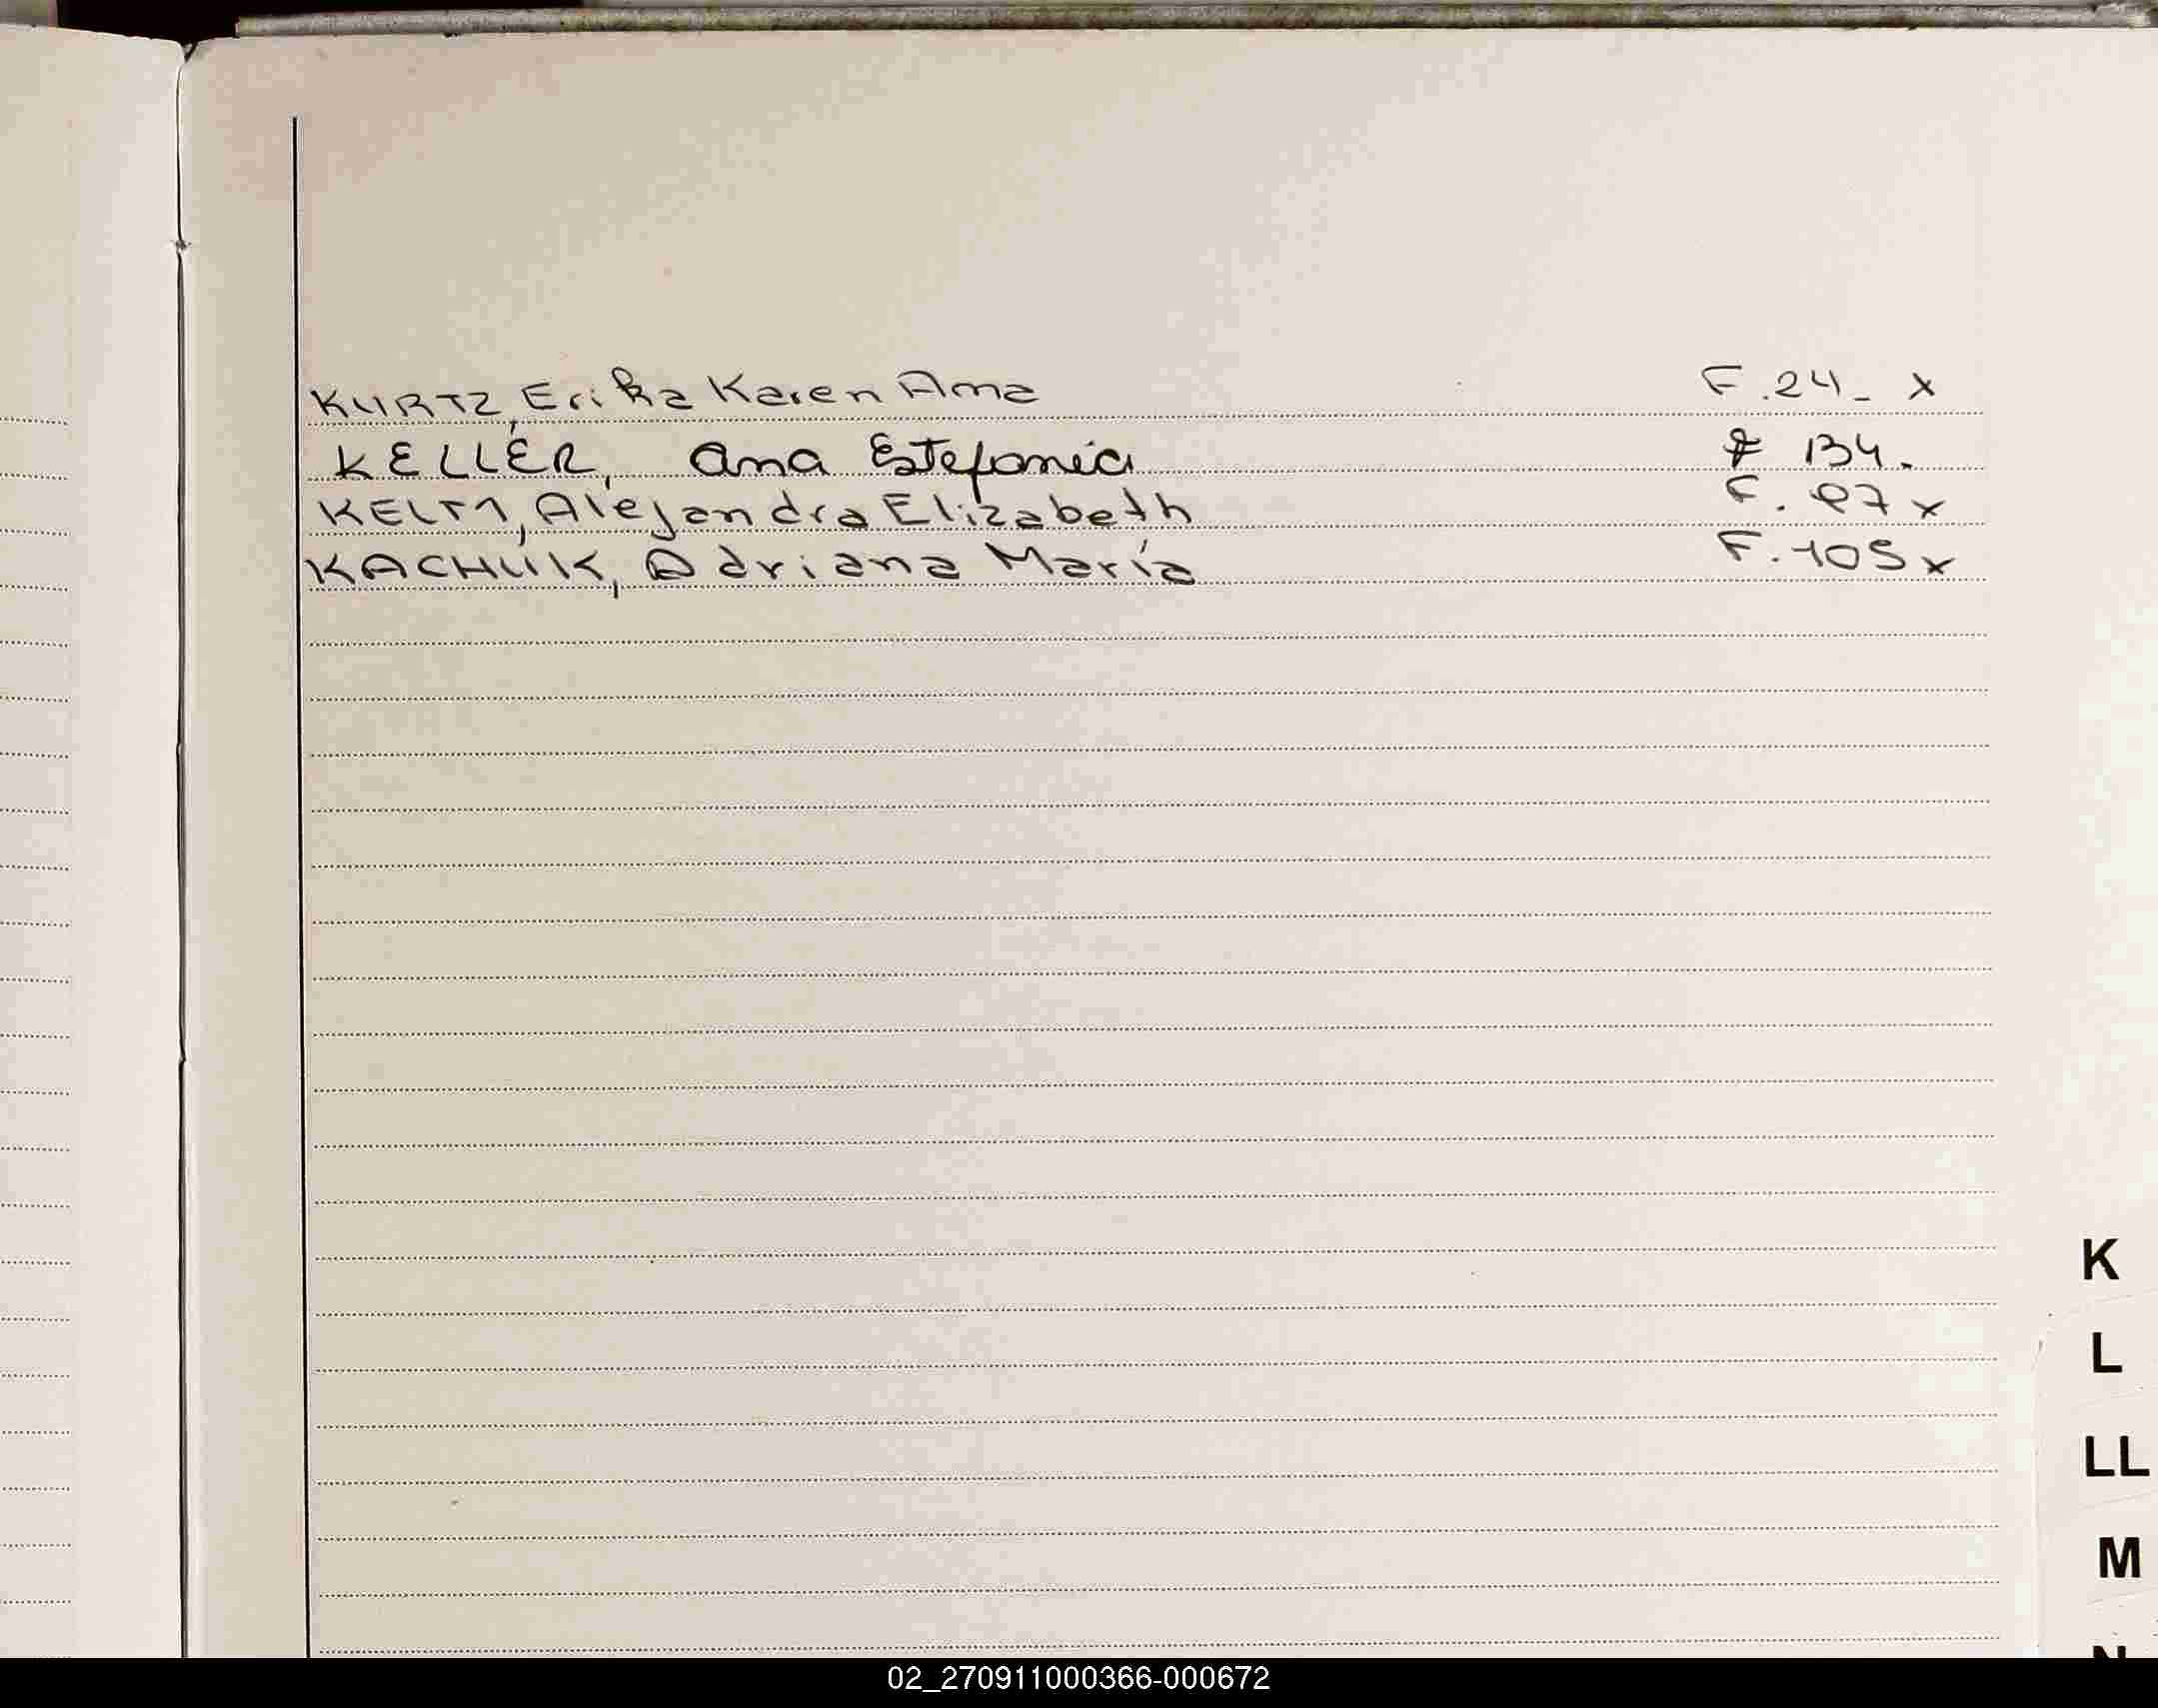 KURTZ, Erika Karen Ama F.24_ x
KELLER, Ana Estefania F 134.
Alejandra Elizabeth F. 97 x
KACHUK, Adriana María F.105 x
K
L
LL
M
N
02_270911000366-000672